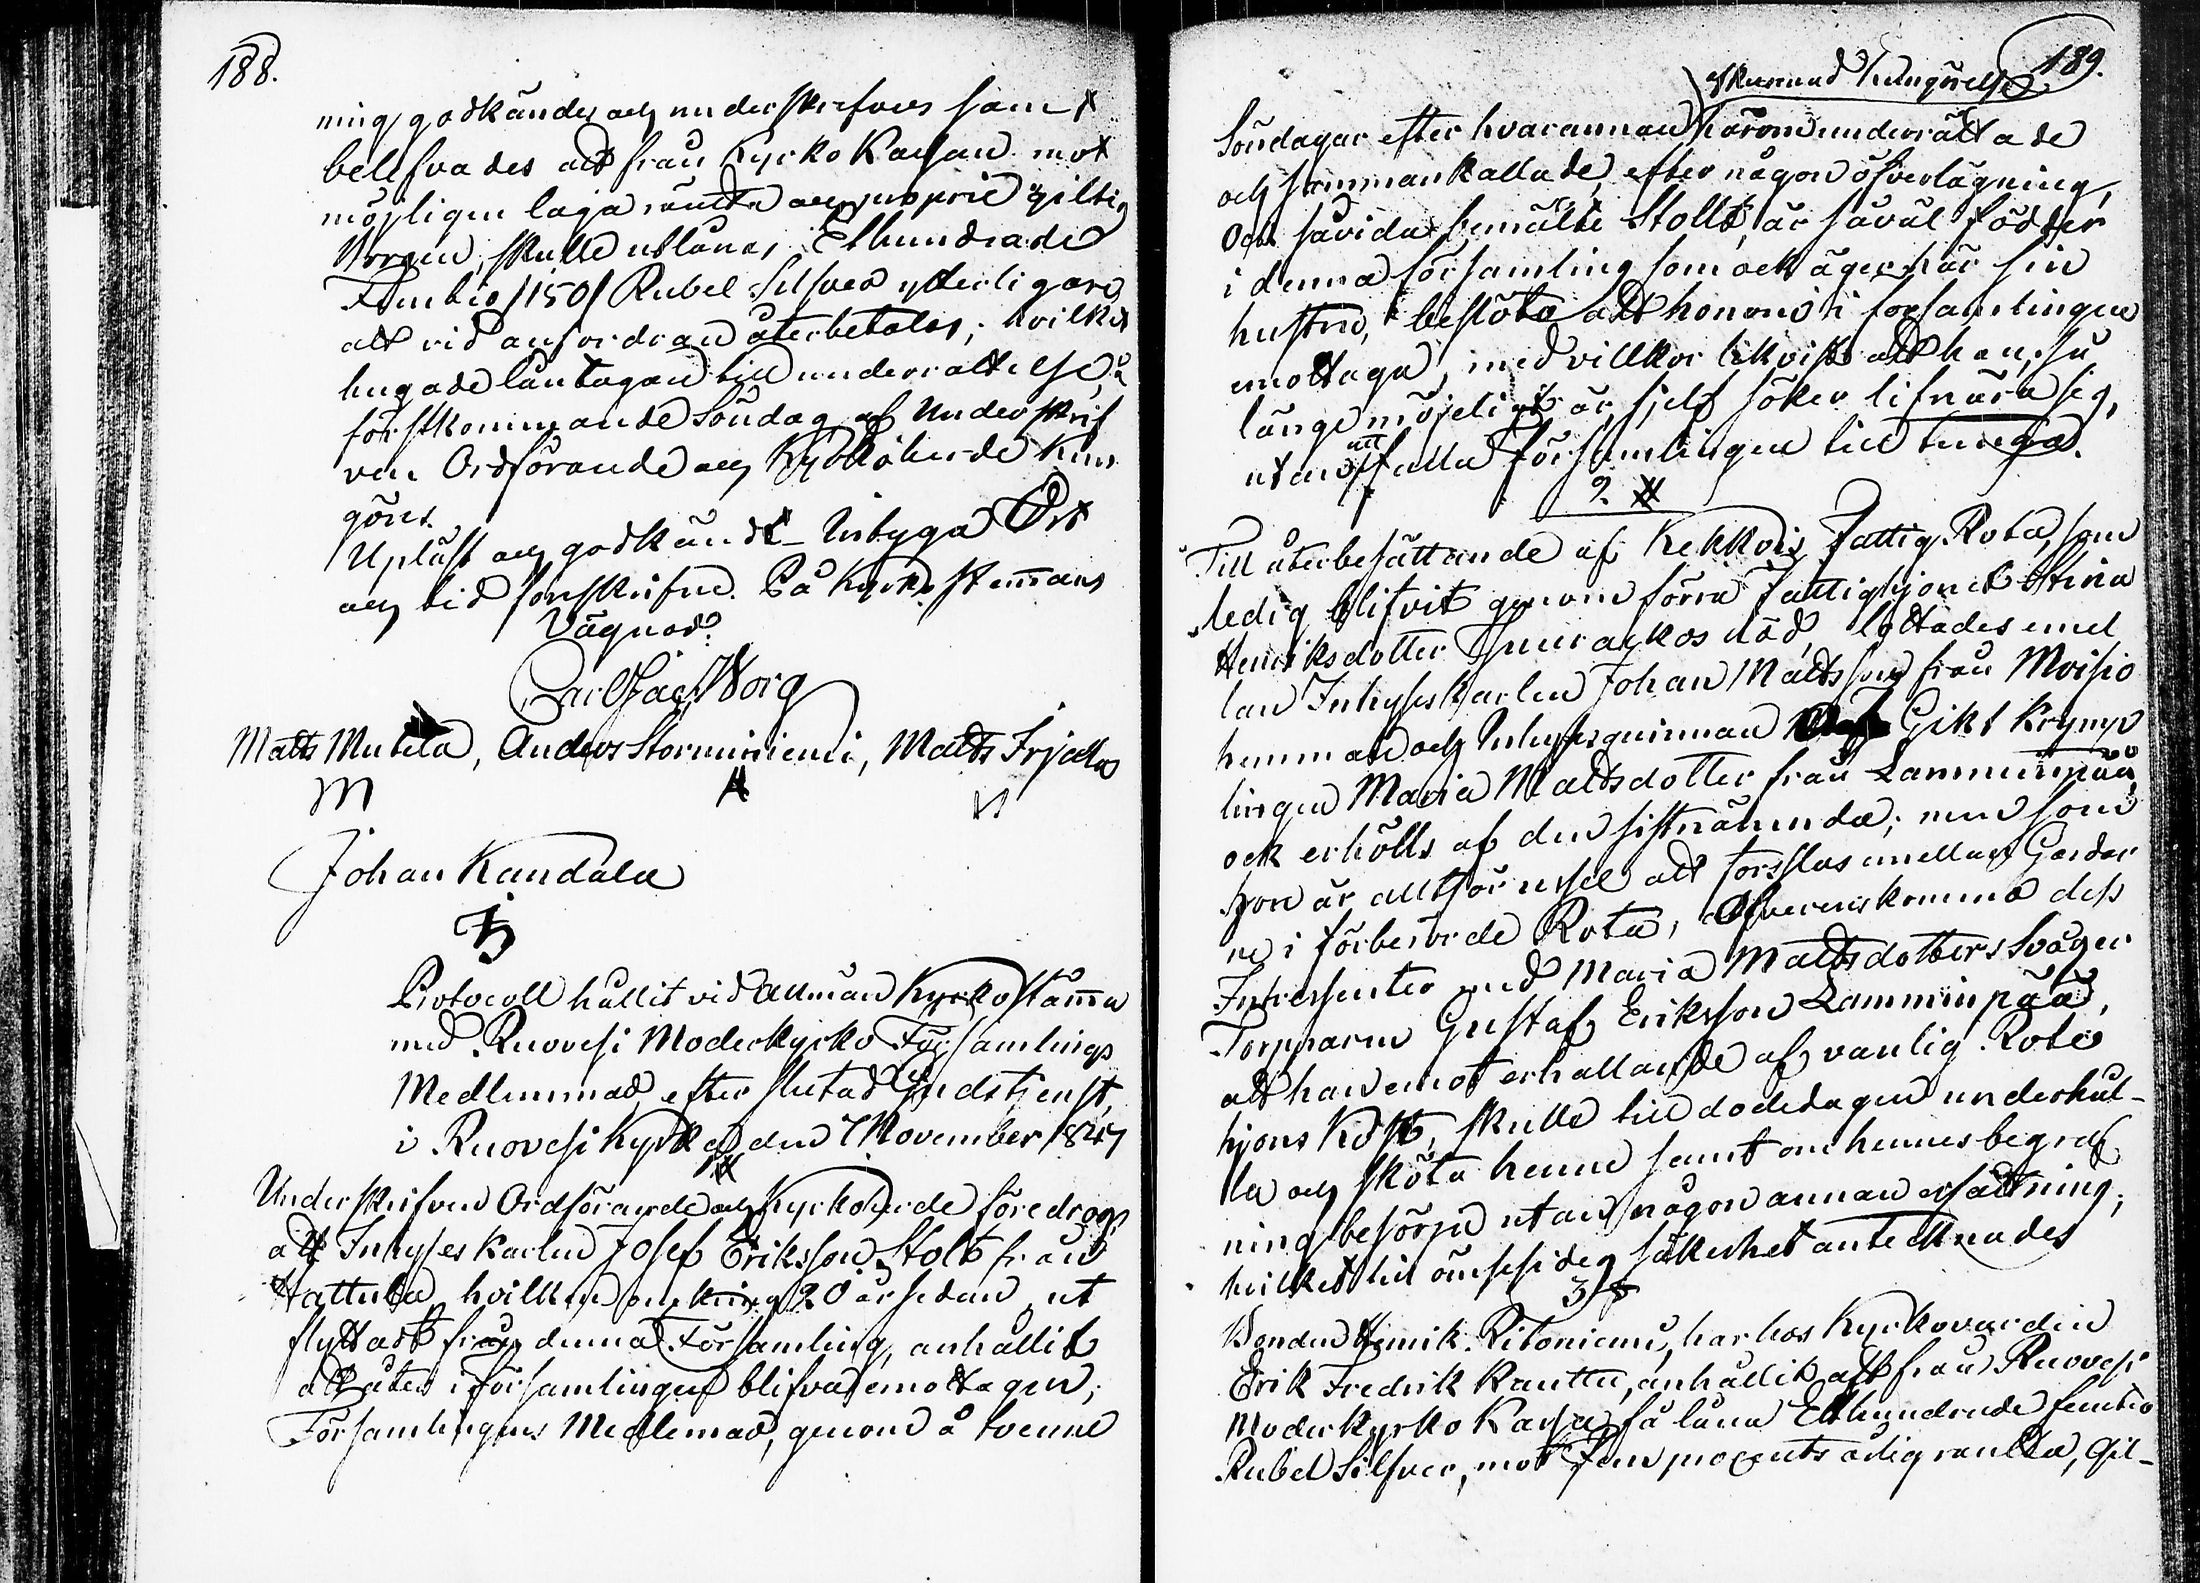 188.
ning, godkändes och underskrefvos samt
belefvades att från Kyrko Kassan mot
möjligen laga ränta och proprie giltig
Borgen, skulle utlånas Etthundrade
Femtio /150/ Rubel Silfver ytterligare
att vid anfordran återbetalas; hvilket
hugade låntagare till underrättelse,
förstkommande Söndag af Underskrif
ven Ordförande och Kyrkoherde kun
göres.
Upläst och godkändt _ Inbyga Ort
och tid som skrifne. På Kyrkostemmans
Vägnar?
Carl Jac Borg
Matts Mutila, Anders Storminiemi, Matts Irjala
M A M
Johan Kandala
Protocoll hållit vid Allmän Kyrkostämma
med Ruovesi Moderkyrko Församlings
Medlemmar, efter slutad Gudstjenst,
i Ruovesi Kyrka den 7 November 1847
Underskrifven Ordförande och Kyrkoherde föredrog
att Inhyses Karlen Josef Eriksson Stolt från
Hattula, hvilken omkring 20 år sedan ut
flyttadt från denna Församling, anhållit
att åter i församlingen blifva emottagen;
Församlingens Medlemmar, genom å tvenne
189.
skeenned Kungörelse
Söndagar efter hvarannan härom underrättade
och sammankallade, efter någon öfverlägning,
Och såvida bemälte Stolt, är såväl födder
i denna församling som ock äger här sin
hustru, beslöto att honom i församlingen
emottaga, med villkor likvist att han, så
länge möjeligt är, sjelf söker lifnära sig,
utan att falla församlingen till tunga.
2 §
Till återbesättande af Kekkois Fattig Rota, som
ledig blifvit genom förra fattighjonet Stina
Henriksdotter död, lottades emel
lan Inhyseskarlen Johan Mattsson från Moisio
hemman och Inhysesqvinnan Gikt Krymp
lingen Maria Mattsdotter från Lamminpää,
ock erhölls af den sistnämnda; men som
hon är alltför ussel att forsslas emellan Gårdar
ne i förberörde Rota, Öfverenskommo dess
Intressenter med Maria Mattsdotters Svåger
Torpparen Gustaf Eriksson Lamminpää,
att han emot erhållande af vanlig Rote
hjons Kost, skulle till dödedagen underhål-
la och sköta henne samt om hennes begraf
ning besörja utan någon annan ersättning;
hvilket till ömsesidig säkerhet antecknades
3 §
Bonden Henrik Ritoniemi, har hos Kyrkovärden
Erik Fredrik Kauttu, anhållit att från Ruovesi
Moderkyrko Kassa få låna Etthundrade femtio
Rubel Silfver, mot Fem procents årlig ränta, Gil-